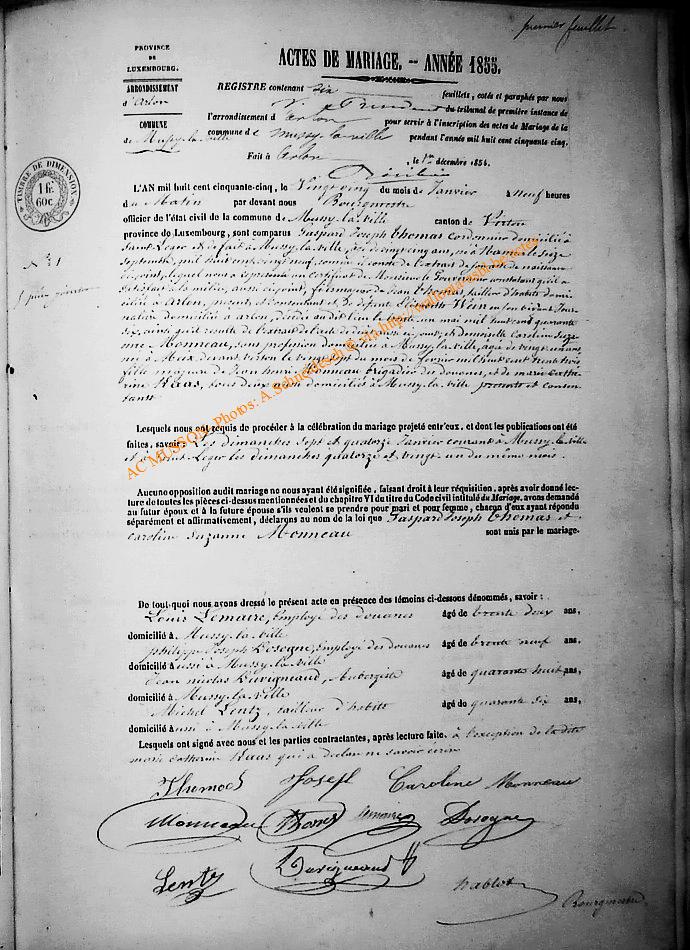 premier feuillet
PROVINCE
DE
LUXEMBOURG.
ARRONDISSEMENT
d'Arlon
COMMUNE
de Mussy-la-ville
TIMBRE DE DIMENSION
1 fr.
60c.
ACTES DE MARIAGE. — ANNÉE 1855.
REGISTRE contenant dix feuillets, cotés et paraphés par nous
V. Président du tribunal de première instance de
l'arrondissement d'Arlon pour servir à l'inscription des actes de Mariage de la
commune de Mussy-la-ville pendant l'année mil huit cent cinquante cinq.
Fait à Arlon, le 1er décembre 1854.
N° 1
L'AN mil huit cent cinquante-cinq, le Vingt cinq du mois de Janvier à neuf heures
du Matin par devant nous Bourgmestre
officier de l'état civil de la commune de Mussy-la-ville canton de Virton
province de Luxembourg, sont comparus Gaspard Joseph Thomas cordonnier domicilié à
Saint Léger et de fait à Mussy-la-ville, âgé de vingt cinq ans, né à Namur le seize
Septembre mil huit cent vingt neuf, comme il conste de l'extrait de son acte de naissance
ci-joint, lequel nous a représenté un certificat de Monsieur le Gouverneur constatant qu'il a
satisfait à la milice, aussi ci-joint, fils majeur de Jean Thomas, tailleur d'habits domi-
cilié à Arlon, présent et consentant et de défunte Elisabeth Wein en son vivant Jour-
nalière domiciliée à Arlon, décédée audit lieu le trente un mai mil huit cent quarante
six, ainsi qu'il résulte de l'extrait de l'acte de décès ci-joint, et demoiselle Caroline Suzan-
ne Monneau, sans profession domiciliée à Mussy-la-ville, âgée de vingt un ans,
née à Meix devant Virton le vingt sept du mois de février mil huit cent trente trois
fille majeure de Jean henri Monneau brigadier des douanes, et de marie Cathe-
rine Haas, tous deux aussi domiciliés à Mussy-la-ville présents et consen-
tants
Lesquels nous ont requis de procéder à la célébration du mariage projeté entr'eux, et dont les publications ont été
faites, savoir : Les dimanches sept et quatorze Janvier courant à Mussy-la-ville
et à Saint Léger les dimanches quatorze et vingt un du même mois.
Aucune opposition audit mariage ne nous ayant été signifiée, faisant droit à leur réquisition, après avoir donné lec-
ture de toutes les pièces ci-dessus mentionnées et du chapitre VI du titre du Code civil intitulé du Mariage, avons demandé
au futur époux et à la future épouse s'ils veulent se prendre pour mari et pour femme, chacun d'eux ayant répondu
séparément et affirmativement, déclarons au nom de la loi que Gaspard Joseph Thomas et
Caroline Suzanne Monneau sont unis par le mariage.
De tout quoi nous avons dressé le présent acte en présence des témoins ci-dessous dénommés, savoir :
Louis Lemaire, Employé des douanes âgé de trente deux ans,
domicilié à Mussy-la-ville
philippe Joseph Dosogne, Employé des douanes âgé de trente neuf ans,
domicilié aussi à Mussy-la-ville
Jean nicolas Duvigneaud, Aubergiste âgé de quarante huit ans,
domicilié à Mussy-la-ville
Michel Lentz, tailleur d'habits âgé de quarante six ans,
domicilié aussi à Mussy-la-ville
Lesquels ont signé avec nous et les parties contractantes, après lecture faite, à l'exception de la dite
marie catherine Haas qui a déclaré ne savoir écrire
Thomas Joseph Caroline Monneau
Monneau Thomas Lemaire Dosogne
Lentz Duvigneaud hablot
Bourgmestre
AC MUSSON, Photos: A.Schneidesch & via http://wallonia.saill.be/actes